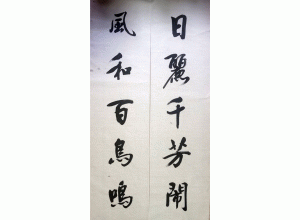 日麗千芳鬧
風和百鳥鳴